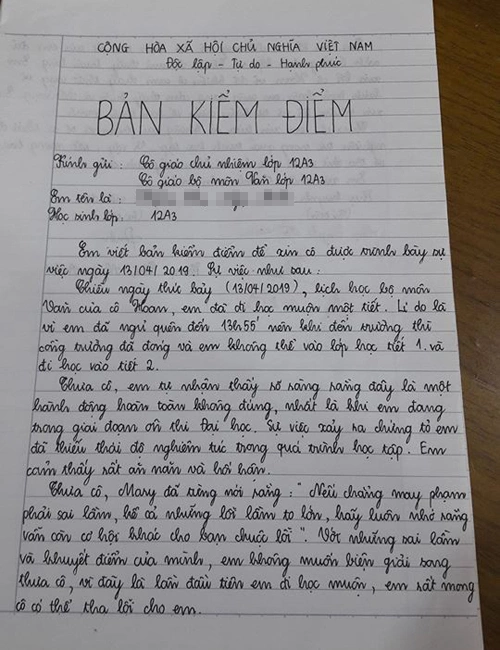 CỘNG HÒA XÃ HỘI CHỦ NGHĨA VIỆT NAM
Độc lập - Tự do - Hạnh phúc
BẢN KIỂM ĐIỂM
Kính gửi : Cô giáo chủ nhiệm lớp 12A3
Cô giáo bộ môn Văn lớp 12A3
Em tên là :
Học sinh lớp : 12A3
Em viết bản kiểm điểm để xin cô được trình bày sự
việc ngày 13/04/2019. Sự việc như sau :
Chiều ngày thức bảy (13/04/2019), lịch học bộ môn
Văn của cô Hoan, em đã đi học muộn một tiết. Lí do là
vì em đã ngủ quên đến 13h55' nên khi đến trường thì
cổng trường đã đóng và em không thể vào lớp học tiết 1. và
đi học vào tiết 2.
Thưa cô, em tự nhận thấy rõ ràng rằng đây là một
hành động hoàn toàn không đúng, nhất là khi em đang
trong giai đoạn ôn thi Đại học. Sự việc xảy ra chứng tỏ em
đã thiếu thái độ nghiêm túc trong quá trình học tập. Em
cảm thấy rất ăn năn và hối hận.
Thưa cô, Mary đã từng nói rằng : "Nếu chẳng may phạm
phải sai lầm, kể cả những lỗi lầm to lớn, hãy luôn nhớ rằng
vẫn còn cơ hội khác cho bạn chuộc lỗi". Với những sai lầm
và khuyết điểm của mình, em không muốn biện giải song
thưa cô, vì đây là lần đầu tiên em đi học muộn, em rất mong
cô có thể tha lỗi cho em.